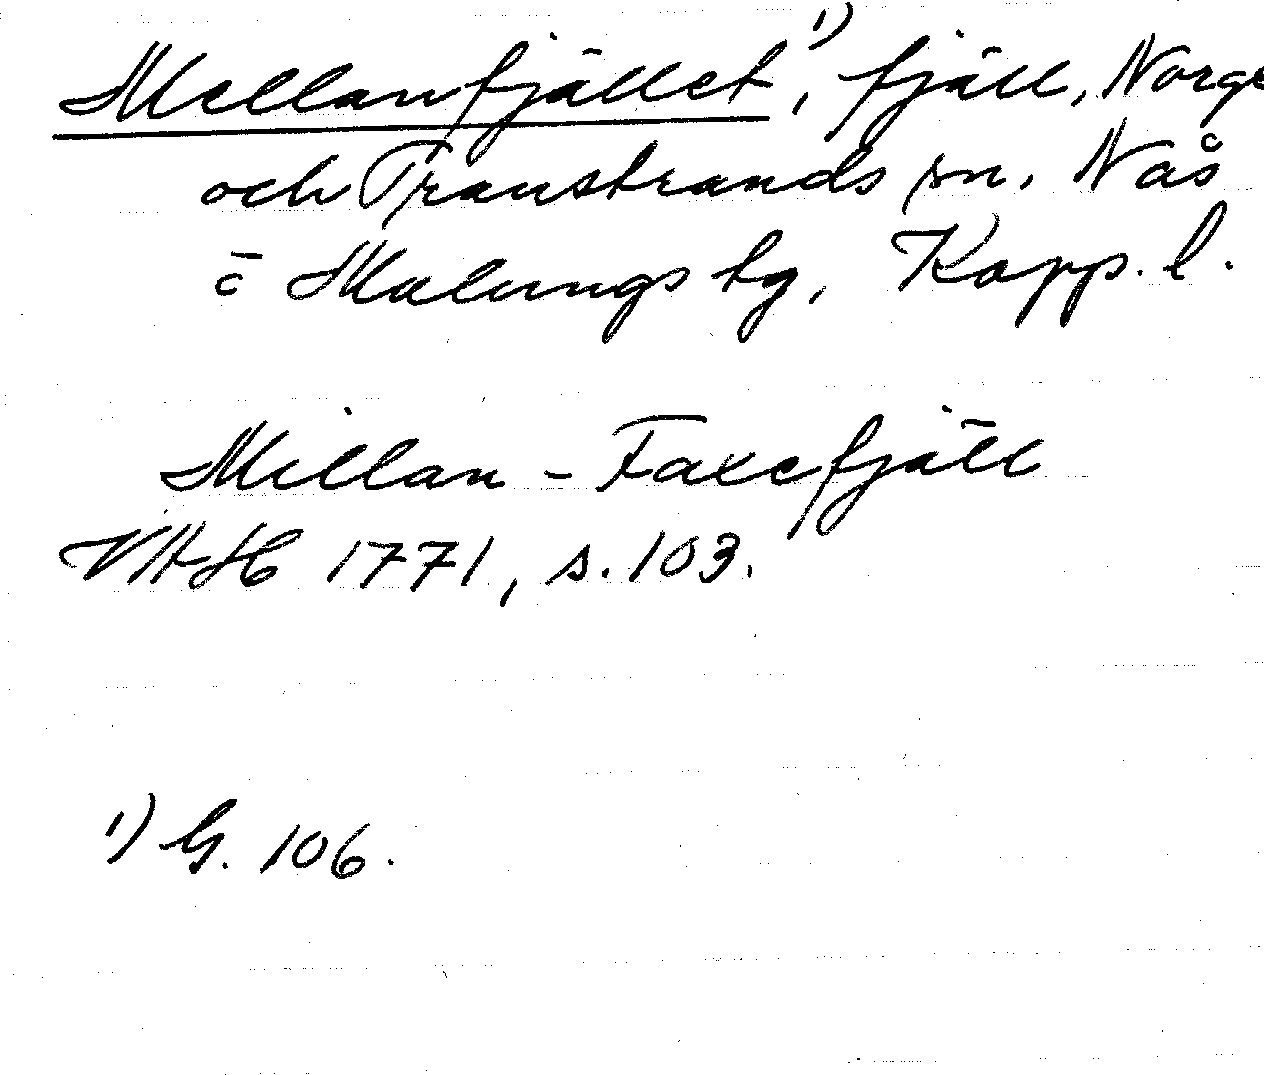 Mellanfjället,¹⁾ fjäll, Norge
och Transtrands sn. Nås
o Malungs tg, Kopp. l.
Millan - Faxefjäll
VAH 1771, s. 103.
¹⁾ G. 106.